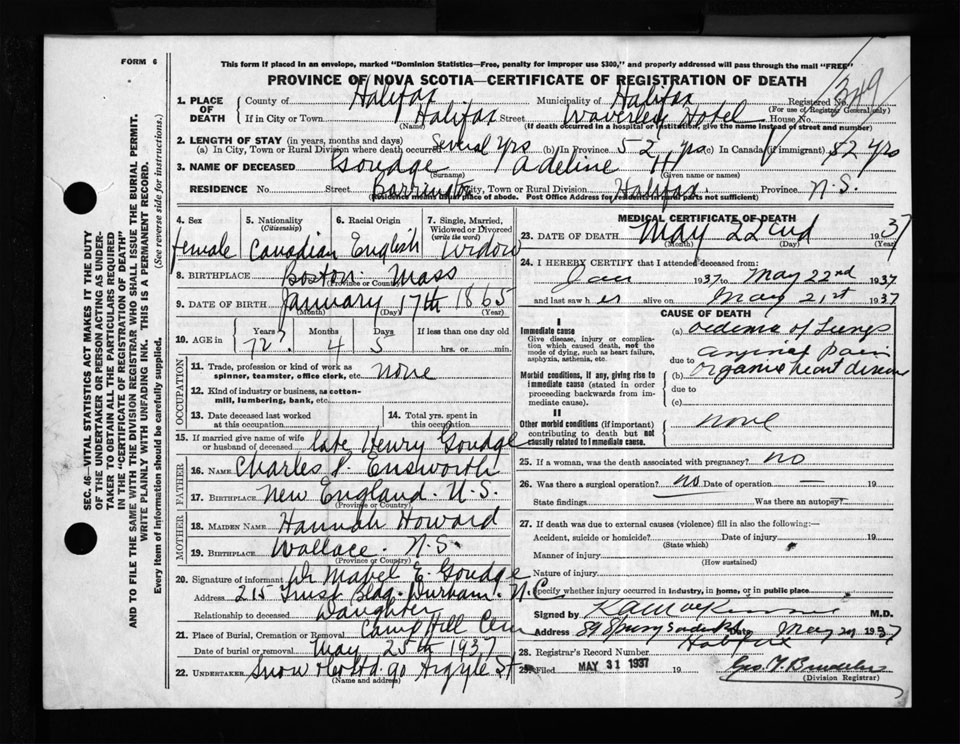 FORM 6
This form if placed in an envelope, marked "Dominion Statistics—Free, penalty for improper use $300," and properly addressed will pass through the mail "FREE"
PROVINCE OF NOVA SCOTIA—CERTIFICATE OF REGISTRATION OF DEATH
349
1. PLACE OF DEATH County of Halifax Municipality of Halifax Registered No.
(For use of Registrar General only)
If in City or Town Halifax Street Waverley Hotel House No.
(Name) (If death occurred in a hospital or institution, give the name instead of street and number)
2. LENGTH OF STAY (in years, months and days)
(a) In City, Town or Rural Division where death occurred Several yrs (b) In Province 52 yrs (c) In Canada (if immigrant) 52 yrs
3. NAME OF DECEASED Goudge Adeline H
(Surname) (Given name or names)
RESIDENCE No. Street Barrington City, Town or Rural Division Halifax Province N.S.
(Residence means usual place of abode. Post Office Address for residents in rural parts not sufficient)
4. Sex female
5. Nationality (Citizenship) Canadian
6. Racial Origin English
7. Single, Married, Widowed or Divorced (write the word) Widow
8. BIRTHPLACE Boston Mass
(Province or Country)
9. DATE OF BIRTH January 17th 1865
(Month) (Day) (Year)
10. AGE in Years 72 Months 4 Days 5 If less than one day old
hrs. or min.
OCCUPATION
11. Trade, profession or kind of work as spinner, teamster, office clerk, etc. none
12. Kind of industry or business, as cotton-mill, lumbering, bank, etc.
13. Date deceased last worked at this occupation
14. Total yrs. spent in this occupation
15. If married give name of wife or husband of deceased late Henry Goudge
FATHER
16. NAME Charles P. Ensworth
17. BIRTHPLACE New England. U.S.
(Province or Country)
MOTHER
18. MAIDEN NAME Hannah Howard
19. BIRTHPLACE Wallace. N.S.
(Province or Country)
20. Signature of informant Dr Mabel E. Goudge
Address 215 Trust Bldg. Durham. N.C.
Relationship to deceased Daughter
21. Place of Burial, Cremation or Removal Camp Hill Cem
Date of burial or removal May 25th 1937
22. UNDERTAKER Snow & Co Ltd. 90 Argyle St
(Name and address)
MEDICAL CERTIFICATE OF DEATH
23. DATE OF DEATH May 22nd 1937
(Month) (Day) (Year)
24. I HEREBY CERTIFY that I attended deceased from:
Jan 1937 to May 22nd 1937
and last saw her alive on May 21st 1937
CAUSE OF DEATH
I
Immediate cause
Give disease, injury or complication which caused death, not the mode of dying, such as heart failure, asphyxia, asthenia, etc.
(a) oedema of Lungs
due to anginal pain
Morbid conditions, if any, giving rise to immediate cause (stated in order proceeding backwards from immediate cause).
(b) organic heart disease
due to
(c)
II
Other morbid conditions (if important) contributing to death but not causally related to immediate cause.
none
25. If a woman, was the death associated with pregnancy? no
26. Was there a surgical operation? no Date of operation — 19
State findings Was there an autopsy?
27. If death was due to external causes (violence) fill in also the following:—
Accident, suicide or homicide? Date of injury 19
(State which)
Manner of injury
(How sustained)
Nature of injury
Specify whether injury occurred in industry, in home, or in public place
Signed by M.D.
Address 89 Spring Garden Rd Date May 1937
Halifax
28. Registrar's Record Number
29. Filed MAY 31 1937 19
(Division Registrar)
SEC. 46—VITAL STATISTICS ACT MAKES IT THE DUTY
OF THE UNDERTAKER OR PERSON ACTING AS UNDER-
TAKER TO OBTAIN ALL THE PARTICULARS REQUIRED
IN THE "CERTIFICATE OF REGISTRATION OF DEATH"
AND TO FILE THE SAME WITH THE DIVISION REGISTRAR WHO SHALL ISSUE THE BURIAL PERMIT.
WRITE PLAINLY WITH UNFADING INK. THIS IS A PERMANENT RECORD.
Every item of information should be carefully supplied. (See reverse side for instructions.)